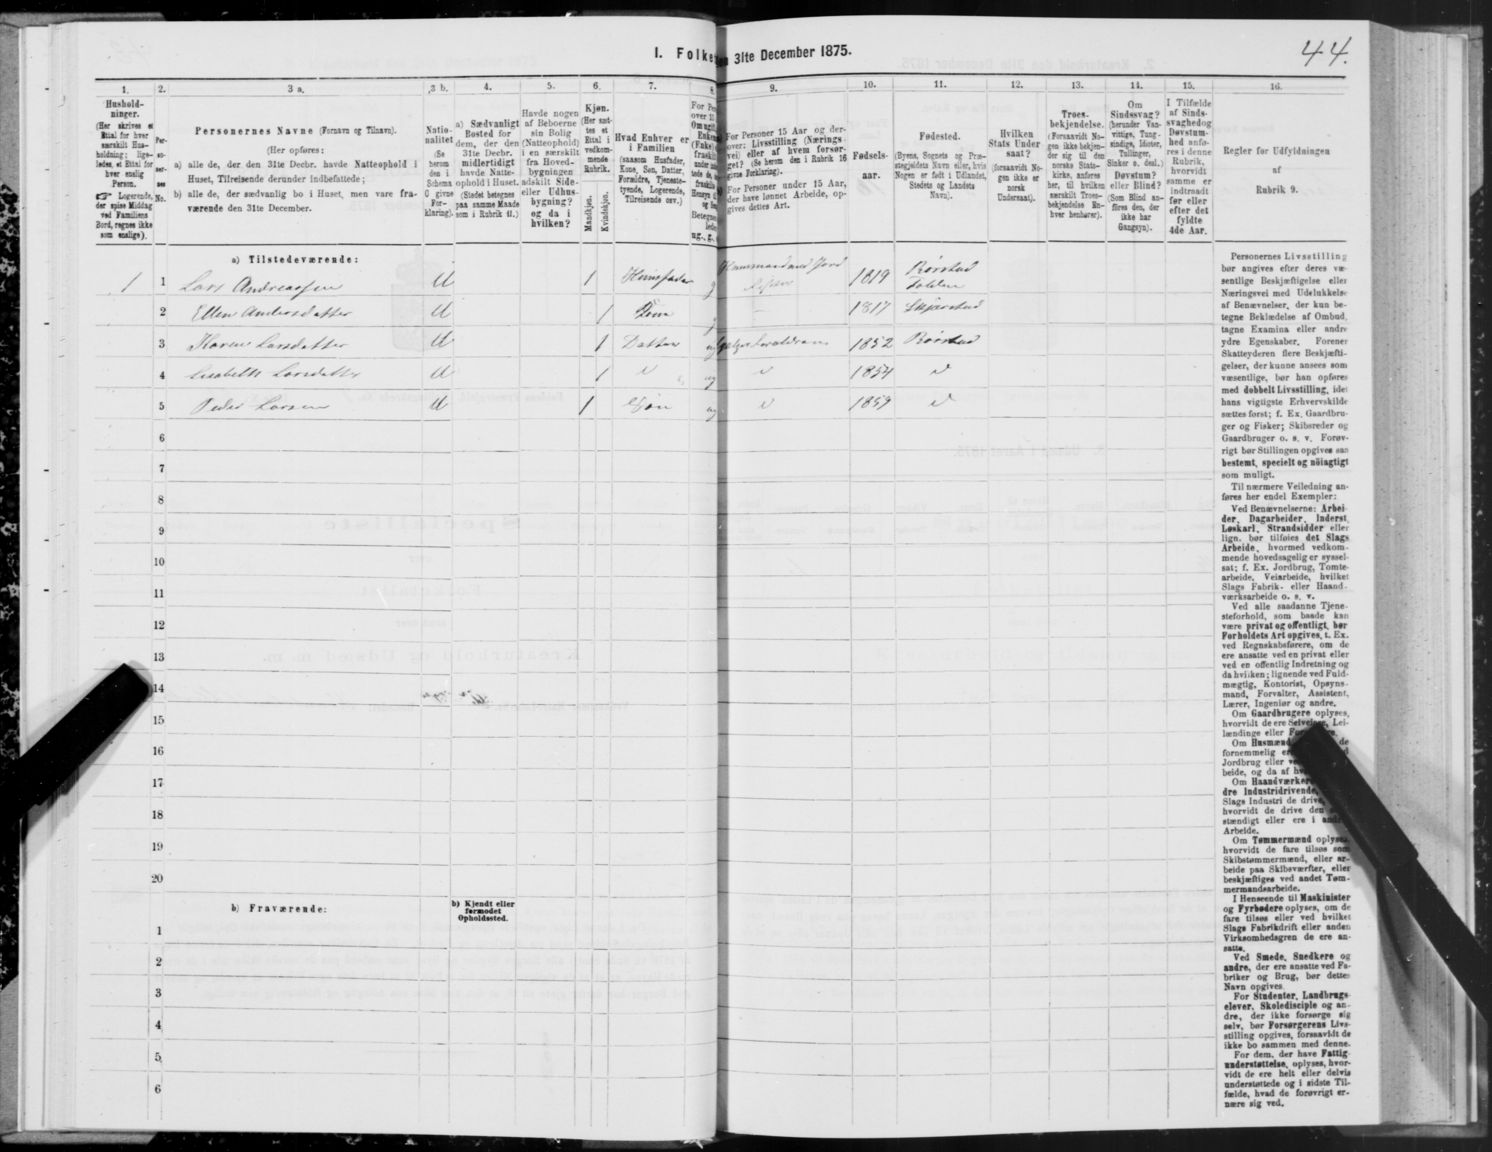 44.
I. Folke
31te December 1875.
1.
2.
3 a.
3 b.
4.
5.
6.
7.
8
9.
10.
11.
12.
13.
14.
15.
16.
Hushold-
ninger.
(Her skrives et
Ettal for hver
særskilt Hus-
holdning; lige-
ledes et Ettal for
hver enslig
Person.
☞ Logerende,
der spise Middag
ved Familiens
Bord, regnes ikke
som enslige).
Per-
so-
ner-
nes
No.
Personernes Navne (Fornavn og Tilnavn).
(Her opføres:
a) alle de, der den 31te Decbr. havde Natteophold i
Huset, Tilreisende derunder indbefattede;
b) alle de, der sædvanlig bo i Huset, men vare fra-
værende den 31te December.
Natio-
nalitet
(Se
herom
den i
Schema
G givne
For-
klaring).
a) Sædvanligt
Bosted for
dem, der den
31te Decbr.
midlertidigt
havde Natte-
ophold i Huset.
(Stedet betegnes
paa samme Maade
som i Rubrik 11.)
Havde nogen
af Beboerne
sin Bolig
(Natteophold)
i en særskilt
fra Hoved-
bygningen
adskilt Side-
eller Udhus-
bygning?
og da i
hvilken?
Kjøn.
(Her sæt-
tes et
Ettal i
vedkom-
mende
Rubrik.
Mandkjøn.
Kvindekjøn.
Hvad Enhver er
i Familien
(saasom Husfader,
Kone, Søn, Datter,
Forældre, Tjeneste-
tyende, Logerende,
Tilreisende osv.)
For Personer 15 Aar og der-
over: Livsstilling (Nærings-
vei) eller af hvem forsør-
get? (Se herom den i Rubrik 16
givne Forklaring).
For Personer under 15 Aar,
der have lønnet Arbeide, op-
gives dettes Art.
Fødsels-
aar.
Fødested.
(Byens, Sognets og Præ-
stegjeldets Navn eller, hvis
Nogen er født i Udlandet,
Stedets og Landets
Navn).
Hvilken
Stats Under-
saat?
(forsaavidt No-
gen ikke er
norsk
Undersaat).
Troes-
bekjendelse.
(Forsaavidt No-
gen ikke bekjen-
der sig til den
norske Stats-
kirke, anføres
her, til hvilken
særskilt Troes-
bekjendelse En-
hver henhører).
Om
Sindssvag?
(herunder Van-
vittige, Tung-
sindige, Idioter,
Tullinger,
Sinker o. desl.)
Døvstum?
eller Blind?
(Som Blind an-
føres den, der
ikke har
Gangsyn).
I Tilfælde
af Sinds-
svaghed og
Døvstum-
hed anfø-
res i denne
Rubrik,
hvorvidt
samme er
indtraadt
før eller
efter det
fyldte
4de Aar.
Regler for Udfyldningen
af
Rubrik 9.
a) Tilstedeværende:
1 1 Lars Andreassen U 1 Huusfader g 1819 Rørstad
Folden
2 Ellen Andersdatter U 1 g 1817 Skjerstad
3 Karen Larsdatter U 1 Datter ug 1852 Rørstad
4 Larsdatter U 1 ug 1854
5 Peder Larsen U 1 Søn ug 1859
6
7
8
9
10
11
12
13
14
15
16
17
18
19
20
b) Fraværende:
b) Kjendt eller
formodet
Opholdssted.
1
2
3
4
5
6
Personernes Livsstilling
bør angives efter deres væ-
sentlige Beskjæftigelse eller
Næringsvei med Udelukkelse
af Benævnelser, der kun be-
tegne Beklædelse af Ombud,
tagne Examina eller andre
ydre Egenskaber. Forener
Skatteyderen flere Beskjæfti-
gelser, der kunne ansees som
væsentlige, bør han opføres
med dobbelt Livsstilling, idet
hans vigtigste Erhvervskilde
sættes først; f. Ex. Gaardbru-
ger og Fisker; Skibsreder og
Gaardbruger o. s. v. Forøv-
rigt bør Stillingen opgives saa
bestemt, specielt og nöiagtigt
som muligt.
Til nærmere Veiledning an-
føres her endel Exempler:
Ved Benævnelserne: Arbei-
der, Dagarbeider, Inderst,
Løskarl, Strandsidder eller
lign. bør tilføies det Slags
Arbeide, hvormed vedkom-
mende hovedsagelig er syssel-
sat; f. Ex. Jordbrug, Tomte-
arbeide, Veiarbeide, hvilket
Slags Fabrik- eller Haand-
værksarbeide o. s. v.
Ved alle saadanne Tjene-
steforhold, som baade kan
være privat og offentligt, bør
Forholdets Art opgives, t. Ex.
ved Regnskabsførere, om de
ere ansatte ved en privat eller
ved en offentlig Indretning og
da hvilken; lignende ved Fuld-
mægtig, Kontorist, Opsyns-
mand, Forvalter, Assistent,
Lærer, Ingeniør og andre.
Om Gaardbrugere oplyses,
hvorvidt de ere Selveiere, Lei-
lændinge eller
Om Husmænd de
fornemmelig
Jordbrug eller
beide, og da af
Om Haandværkere
dre Industridrivende,
Slags Industri de drive,
hvorvidt de drive den
stændigt eller ere i andres
Arbeide.
Om Tømmermænd oplyses,
hvorvidt de fare tilsøs som
Skibstømmermænd, eller ar-
beide paa Skibsværfter, eller
beskjæftiges ved andet Tøm-
mermandsarbeide.
I Henseende til Maskinister
og Fyrbødere oplyses, om de
fare tilsøs eller ved hvilket
Slags Fabrikdrift eller anden
Virksomhedsgren de ere an-
satte.
Ved Smede, Snedkere og
andre, der ere ansatte ved Fa-
briker og Brug, bør dettes
Navn opgives.
For Studenter, Landbrugs-
elever, Skoledisciple og an-
dre, der ikke forsørge sig
selv, bør Forsørgerens Livs-
stilling opgives, forsaavidt de
ikke bo sammen med denne.
For dem, der have Fattig-
understøttelse, oplyses, hvor-
vidt de ere helt eller delvis
understøttede og i sidste Til-
fælde, hvad de forøvrigt er-
nære sig ved.